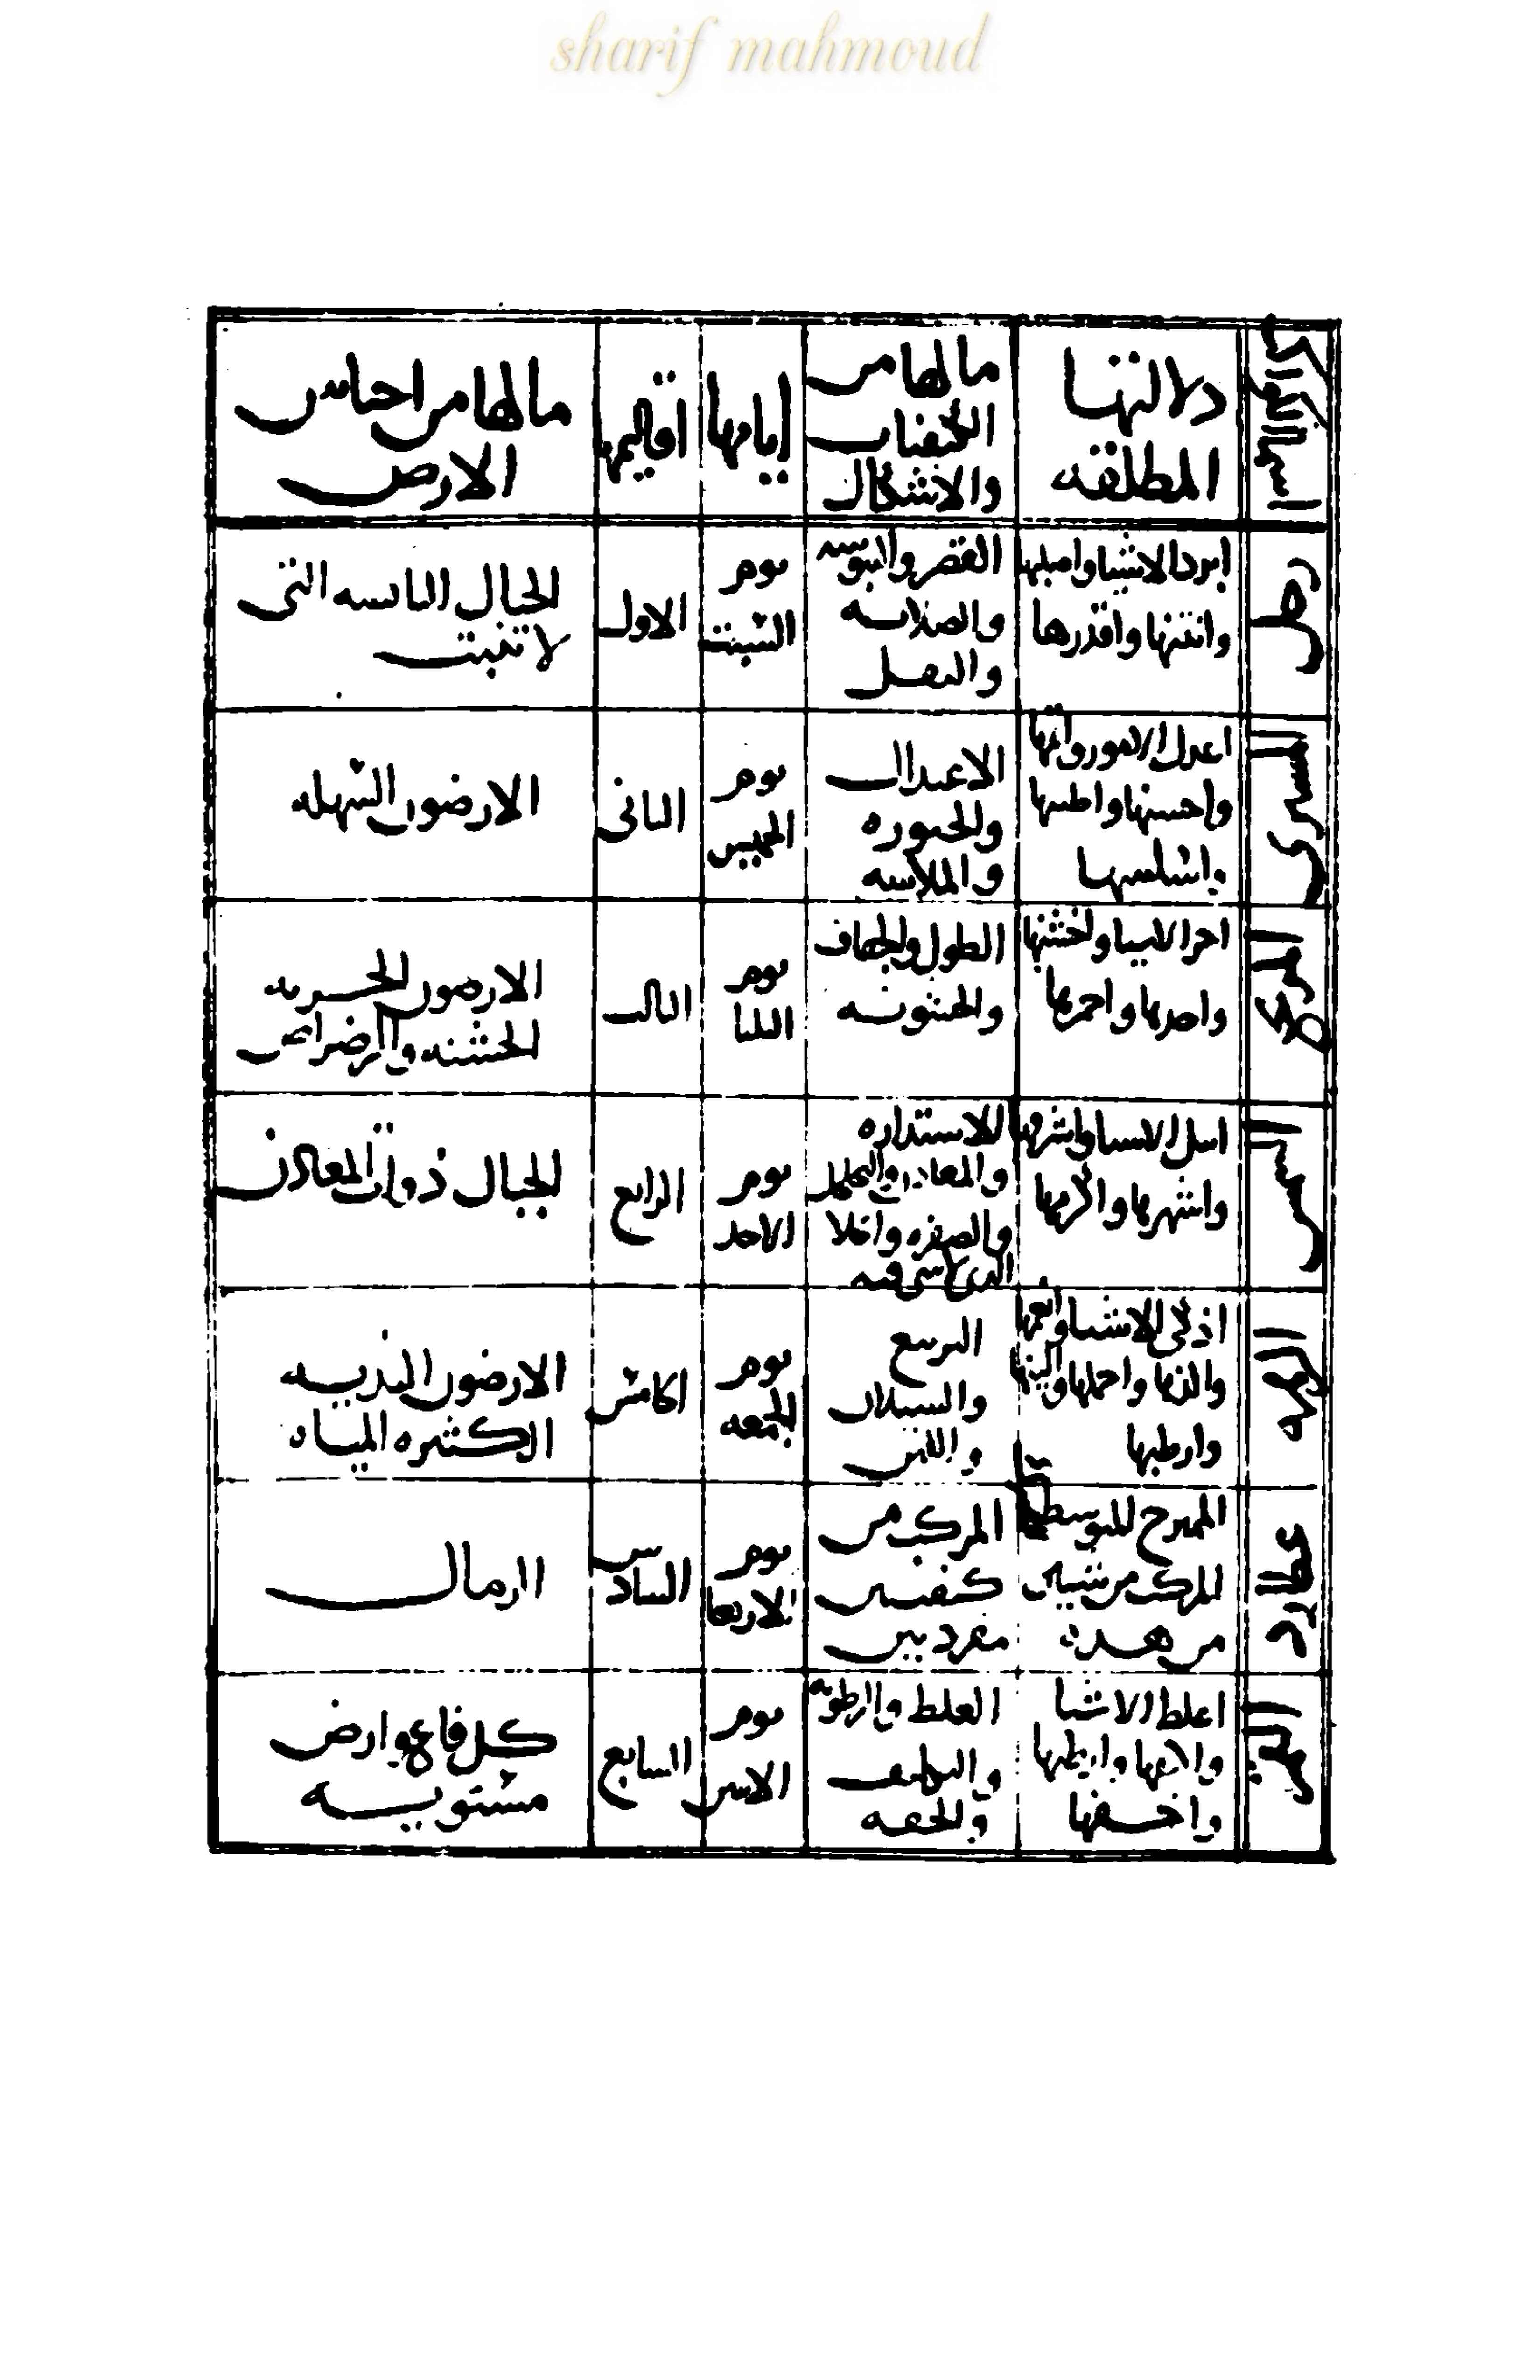 sharif mahmoud
اسما الكواكب
دلالتها
المطلقه
ما لها من
الكيفيات
والاشكال
ايامها
اقاليمها
ما لها من اجناس
الارض
زحل
ابرد الاشيا
وانتنها واقذرها
الفقر
والصلابه
والثقل
يوم
السبت
الاول
الجبال اليابسه التى
لا تنبت
المشترى
اعدل الامور
واحسنها واطيبها
واسلسها
الاعتدال
والملاسه
يوم
الخميس
الثانى
الارضون السهله
المريخ
احر الاشيا واخشنها
واحدها واحمرها
الطول والجفاف
والخشونه
يوم
الثلثا
الثالث
الارضون
الخشنه
الشمس
الاشيا واشرفها
واشهرها واكرمها
الاستداره
يوم
الاحد
الرابع
الجبال ذوات المعادن
الزهره
الاشيا وانعمها
والذها واجملها والينها
وارطبها
التربيع
والسيلان
واللين
يوم
الجمعه
الخامس
الارضون النديه
الكثيره المياه
عطارد
الممتزج المتوسط
المركب من شيئين
من هذه
المركب من
كيفيتين
يوم
الاربعا
السادس
الرمال
القمر
اغلظ الاشيا
وارطبها
واخفها
الغلظ والرطوبه
والخفه
يوم
الاثنين
السابع
كل قاع وارض
مستويه